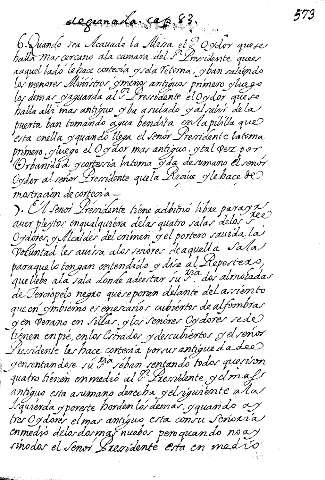 de granada. cap. 83.
573
6. Quando sea Acavado la Missa el Sr. Oydor que se
halla mas cercano ala camara del Sr. Presidente que es
aquel lado le hace cortesia y sola toma, y ban saliendo
los menores Ministros y menos antiguos primero y luego
los demas y aguarda al Sr. Presidente el Oydor que se
halla alli mas antiguo, y ba asulado y al salir de la
puerta ban tomando agua bendita en la pililla que
esta enella y quando llega el señor Presidente la toma
primero, y luego el Oydor mas antiguo, y tal vez por
Urbanidad y cortesia la toma y da de su mano el señor
Oydor al señor Presidente que la Recive y le hace de
mostracion de cortesia
7. El Señor Presidente tiene adbitrio libre para yr
aver pleytos en qualquiera delas quatro salas de los Sres
Oydores, y Alcaldes del crimen, y el portero savida la
Voluntad les avisa alos señores de aquella Sala
para que lo tengan entendido, y dise al Repostero,
que lleve ala sala donde a de estar su Sria dos almoadas
de Terciopelo negro que se ponen delante del assiento
que en ymbierno es en escaños cubiertos de alfombras
y en Verano en Sillas, y los señores Oydores se de
tienen en pie, en los Estrados, y descubiertos y el señor
Presidente les hace cortesia por sus antiguedades
y en sentandose su Sria se ban sentando todos que si son
quatro tienen en medio al Sr. Presidente, y el mas
antiguo esta a su mano derecha y el siguiente a la
Isquierda y por este horden los demas, y quando ay
tres Oydores el mas antiguo esta con su Señoria
en medio de los dos mas nuebos pero quando no ay
sino dos el Señor Presidente esta en medio